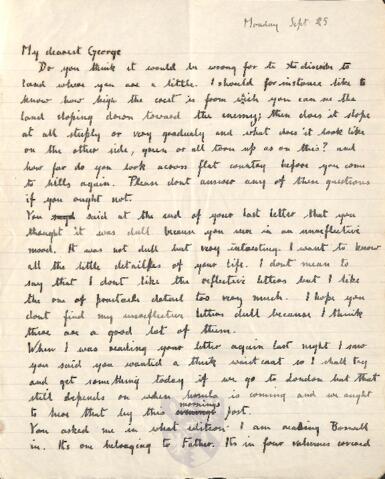 Monday Sept 25
My dearest George
Do you think it would be wrong for to describe to
land where you are a little. I should for instance like to
know how high the crest is from which you can see the
land sloping down toward the enemy; then does it slope
at all steeply or very gradually and what does it look like
on the other side, green or all torn up as on this? and
how far do you look across flat country before you come
to hills again. Please dont answer any of these questions
if you ought not.
You said at the end of your last letter that you
thought it was dull because you were in an unreflective
mood. It was not dull but very interesting. I want to know
all the little details of your life. I dont mean to
say that I dont like the reflective letters but I like
the one of practicle detail too very much. I hope you
dont find my unreflective letters dull because I think
there are a good lot of them.
When I was reading your letter again last night I saw
you said you wanted a thick waistcoat so I shall try
and get something today if we go to London but that
still depends on when Ursula is coming and we ought
to hear that by this mornings post.
You asked me in what edition I am reading Boswell
in. Its one belonging to Father. Its in four volumes covered